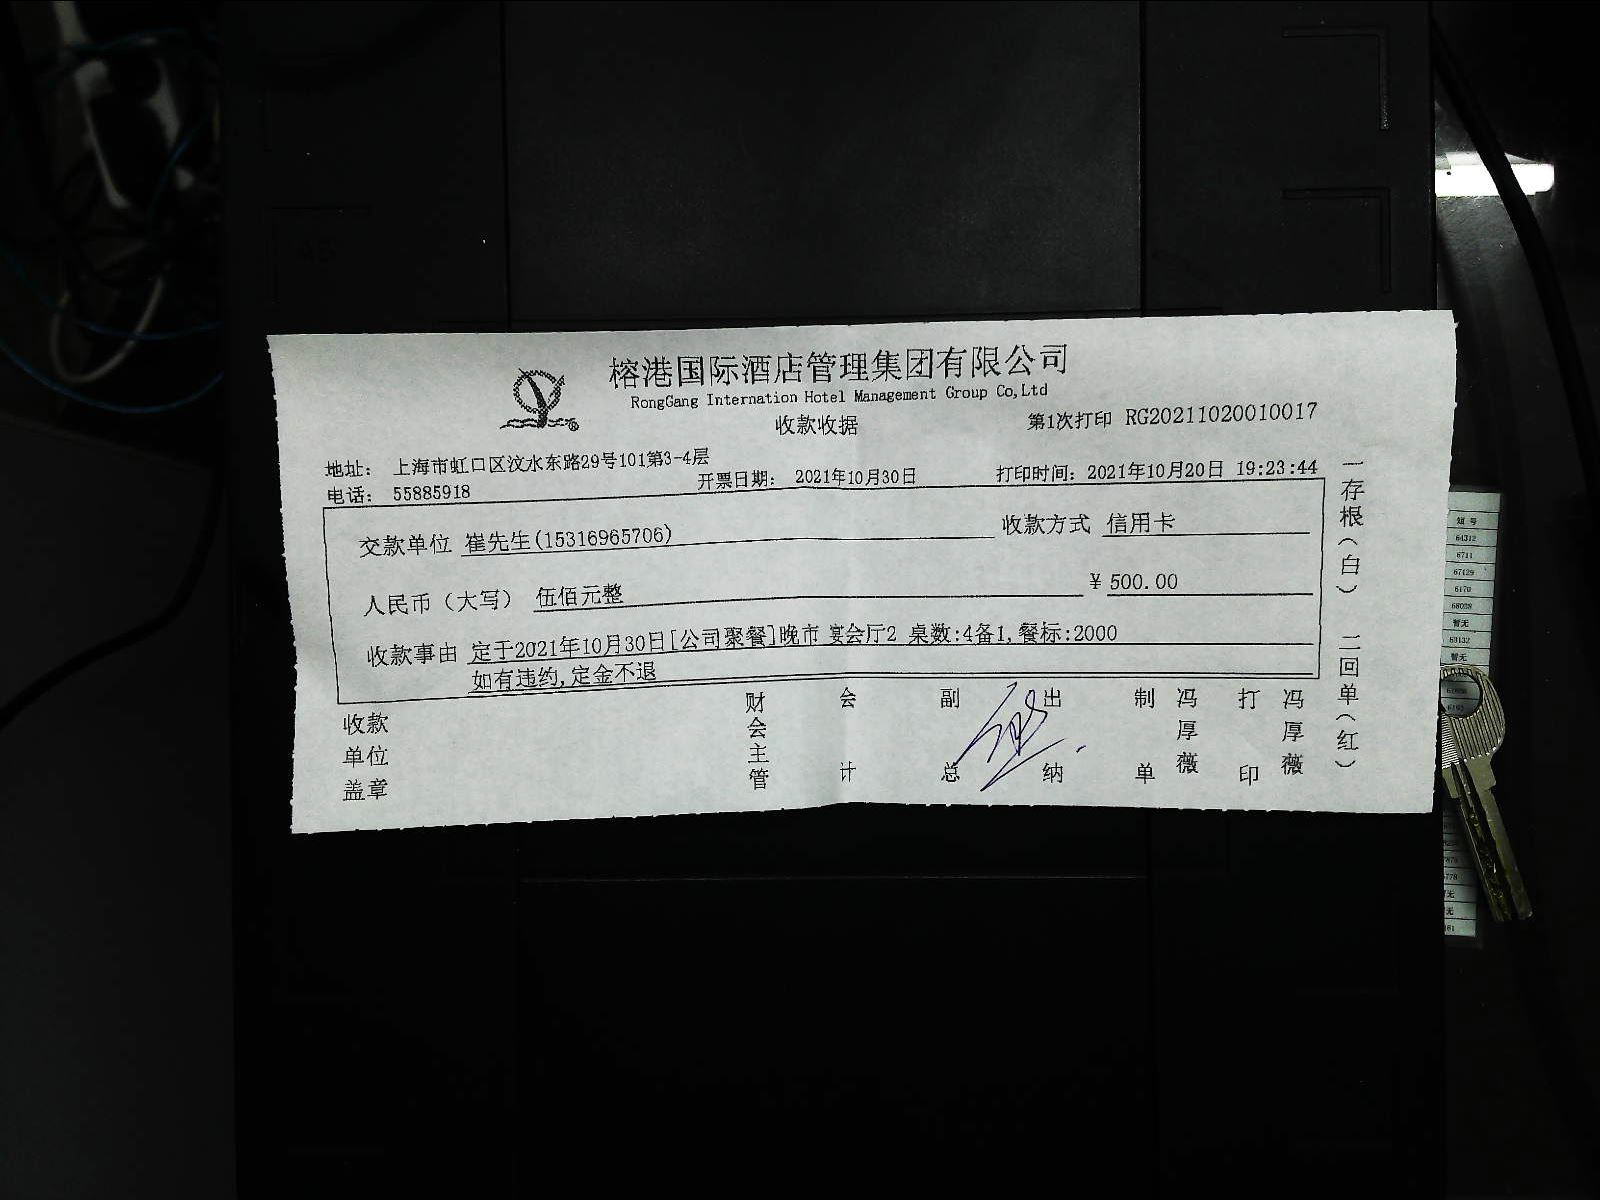 榕港国际酒店管理集团有限公司
RongGang Internation Hotel Management Group Co,Ltd
收款收据
第1次打印 RG20211020010017
地址： 上海市虹口区汶水东路29号101第3-4层
电话： 55885918
开票日期： 2021年10月30日
打印时间：2021年10月20日 19:23:44
交款单位 崔先生(15316965706)
收款方式 信用卡
人民币（大写） 伍佰元整
¥ 500.00
收款事由 定于2021年10月30日[公司聚餐]晚市 宴会厅2 桌数:4备1,餐标:2000
如有违约,定金不退
收款单位盖章
财会主管
会计
副总
出纳
制单
冯厚薇
打印
冯厚薇
一存根（白） 二回单（红）
短号
64312
6711
67129
6170
68088
暂无
63132
暂无